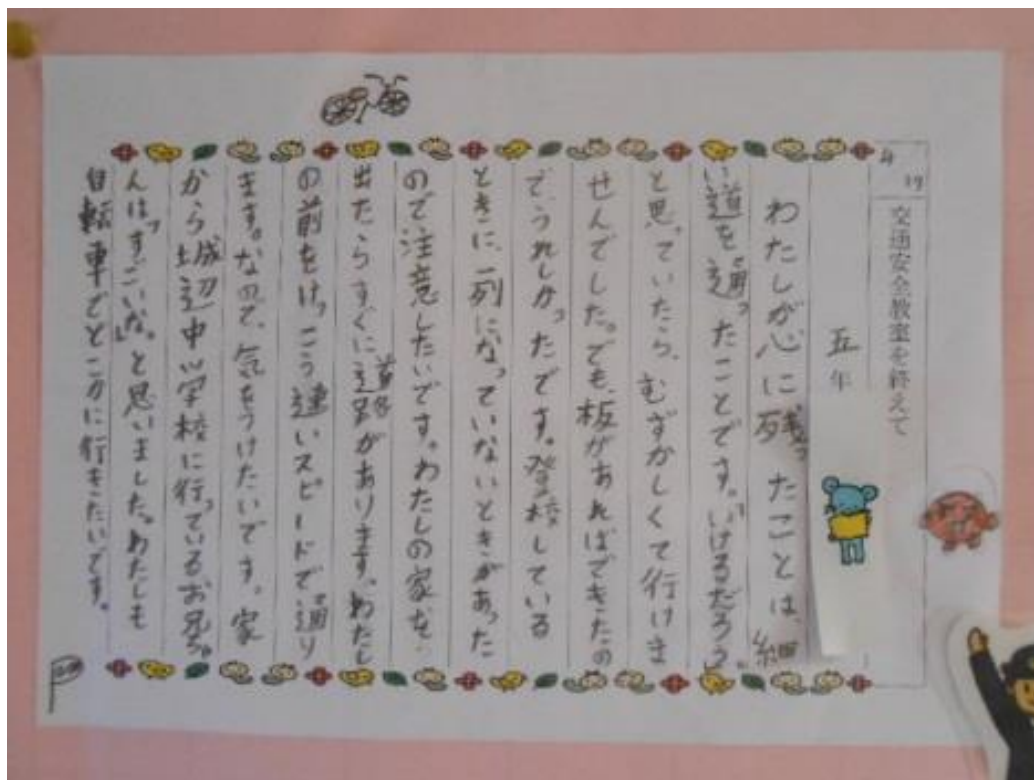 4/19
交通安全教室を終えて
五年
わたしが心に残ったことは、細
い道を通ったことです。「いけるだろう。」
と思っていたら、むずかしくて行けま
せんでした。でも、板があればできたの
で、うれしかったです。登校している
ときに、一列になっていないときがあった
ので、注意したいです。わたしの家を、
出たらすぐに道路があります。わたし
の前をけっこう速いスピードで通り
ます。なので、気をつけたいです。家
から城辺中学校に行っているお兄ちゃ
んは、「すごいな。」と思いました。わたしも
自転車でどこかに行きたいです。